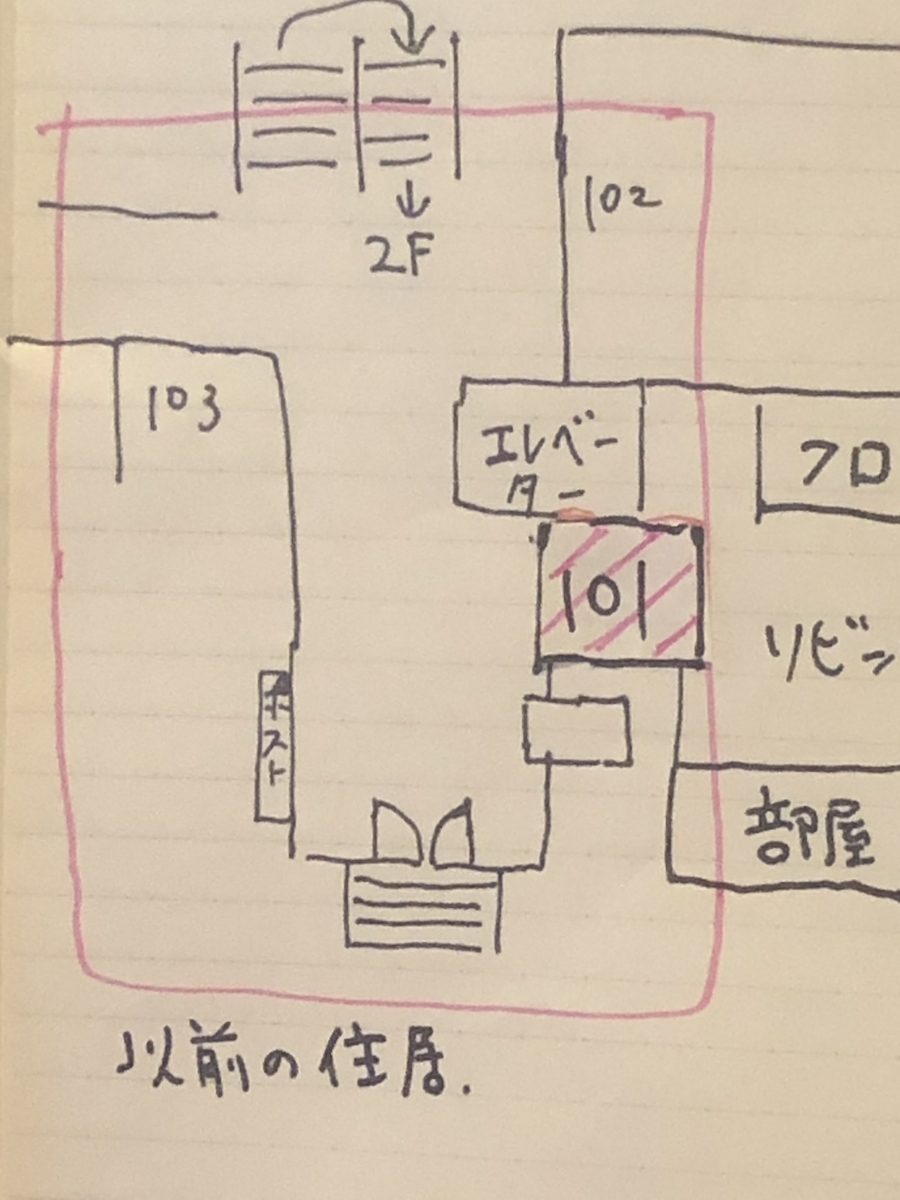 102
2F
103
エレベー
ター
フロ
101
リビン
ポスト
部屋
以前の住居.